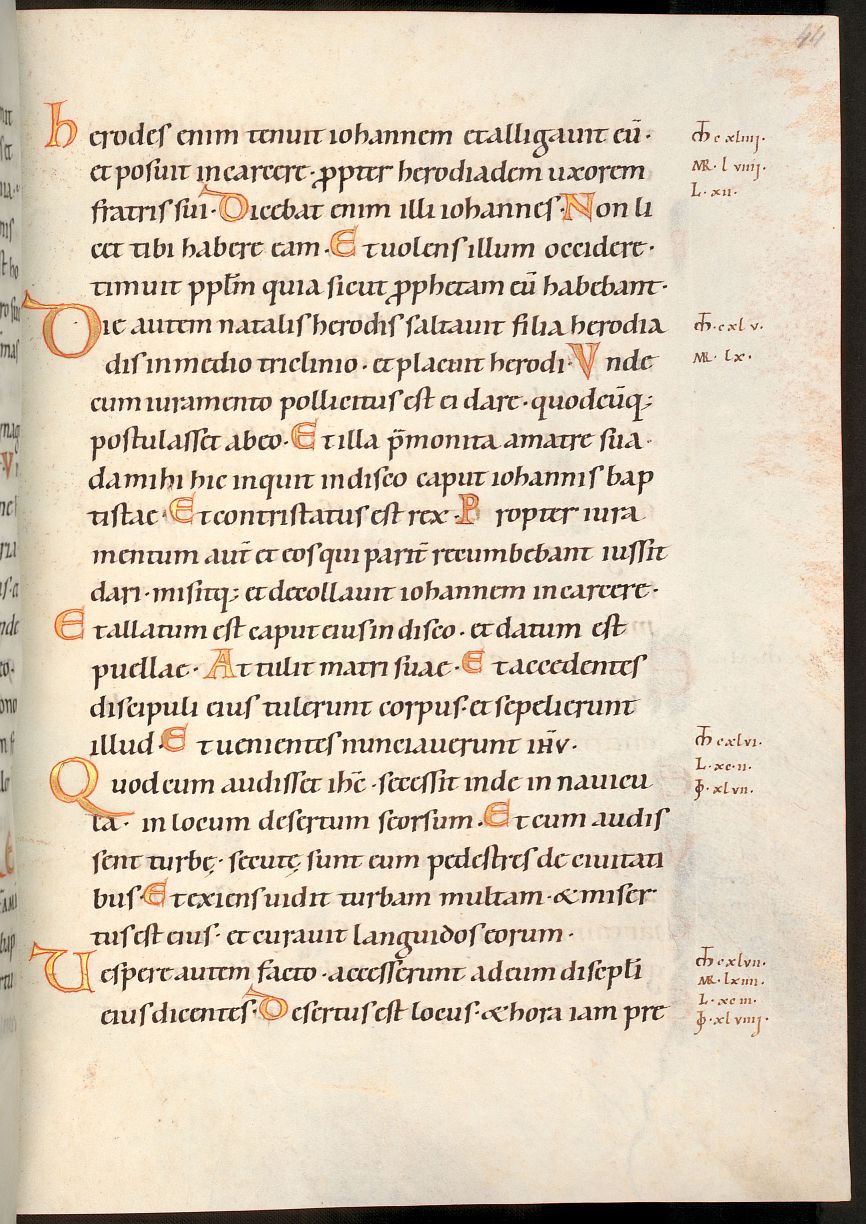 44
herodes enim tenuit iohannem et alligauit eū·
et posuit in carcere· ꝓpter herodiadem uxorem
fratris sui· Dicebat enim illi iohannes· Non li
cet tibi habere eam· Et uolens illum occidere·
timuit ppłm quia sicut ꝓphetam eū habebant·
Die autem natalis herodis saltauit filia herodia
dis in medio triclinio· et placuit herodi· Vnde
cum iuramento pollicitus est ei dare· quodcūq;
postulasset ab eo· Et illa p̄monita a matre sua·
da mihi hic inquit in disco caput iohannis bap
tistae· Et contristatus est rex· Propter iura
mentum aut̄ et eos qui parit̄ recumbebant iussit
dari· misitq; et decollauit iohannem in carcere·
Et allatum est caput eius in disco· et datum est
puellae· Attulit matri suae· Et accedentes
discipuli eius tulerunt corpus· et sepelierunt
illud· Et uenientes nunciauerunt ih̄v·
Quod cum audisset ih̄c· secessit inde in nauicu
la· in locum desertum seorsum· Et cum audis
sent turbę· secutę sunt eum pedestres de ciuitati
bus· Et exiens uidit turbam multam· & miser
tus est eius· et curauit languidos eorum·
Vespere autem facto· accesserunt ad eum discipłi
eius dicentes· Desertus est locus· & hora iam pre
cxliiij·
MR· lviiij·
L· xii·
cxlv·
MR· lx·
cxlvi·
L· xcii·
xlvii·
cxlvii·
MR· lxiiii·
L· xciii·
xlviiij·